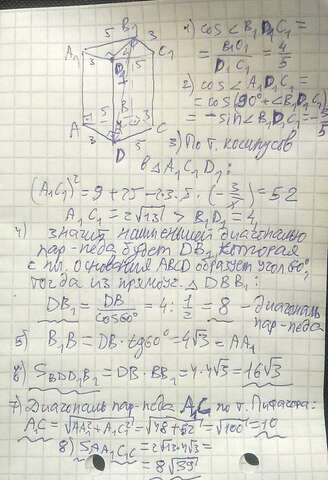 B₁
5 3
A₁ C₁
3 5
D₁
5 B
A 5 3 C
3 5
D
1) cos∠B₁D₁C₁ =
= B₁D₁/D₁C₁ = 4/5
2) cos∠A₁D₁C₁ =
= cos(90°+∠B₁D₁C₁) =
= -sin∠B₁D₁C₁ = -3/5
3) По т. косинусов
в ΔA₁C₁D₁:
(A₁C₁)² = 9 + 25 - 2·3·5·(-3/5) = 52
A₁C₁ = 2√13 > B₁D₁ = 4,
4) значит наименьшей диагональю
пар-педа будет DB₁, которая
с пл. основания ABCD образует угол 60°,
тогда из прямоуг. ΔDBB₁:
DB₁ = DB/cos60° = 4 : 1/2 = 8 - диагональ
пар-педа
5) B₁B = DB·tg60° = 4√3 = AA₁
6) S BDD₁B₁ = DB·BB₁ = 4·4√3 = 16√3
7) Диагональ пар-педа A₁C по т. Пифагора:
A₁C = √AA₁²+A₁C₁² = √48+52 = √100 = 10
8) S AA₁C₁C = 2√13·4√3 =
= 8√39